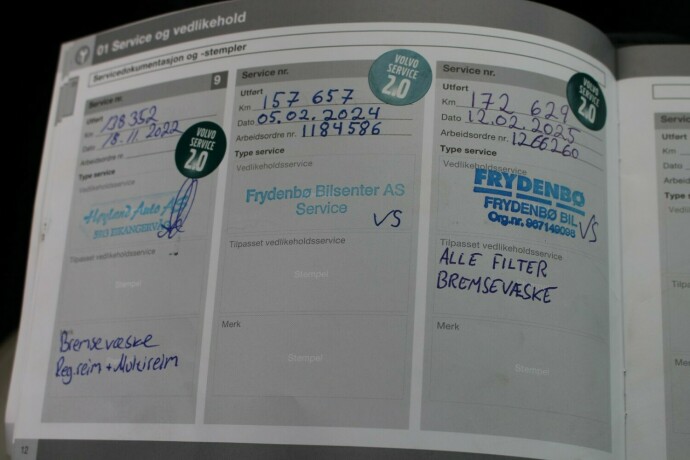 01 Service og vedlikehold
Servicedokumentasjon og -stempler
Service nr.
9
Utført
Km 138 352
Dato 18.11 2022
Arbeidsordre nr.
VOLVO
SERVICE
2.0
Type service
Vedlikeholdsservice
Høyland Auto AS
Tilpasset vedlikeholdsservice
Stempel
Merk
Bremsevæske
Reg.reim + Multireim
12
Service nr.
Utført
Km 157 657
Dato 05.02.2024
Arbeidsordre nr. 1184586
VOLVO
SERVICE
2.0
Type service
Vedlikeholdsservice
Frydenbø Bilsenter AS
Service
VS
Tilpasset vedlikeholdsservice
Stempel
Merk
Stempel
Service nr.
Utført
Km 172 629
Dato 12.02.2025
Arbeidsordre nr. 1266260
VOLVO
SERVICE
2.0
Type service
Vedlikeholdsservice
FRYDENBØ
FRYDENBØ BIL
Org.nr. 967149096
VS
Tilpasset vedlikeholdsservice
ALLE FILTER
BREMSEVÆSKE
Merk
Stempel
Utført
Km
Dato
Type